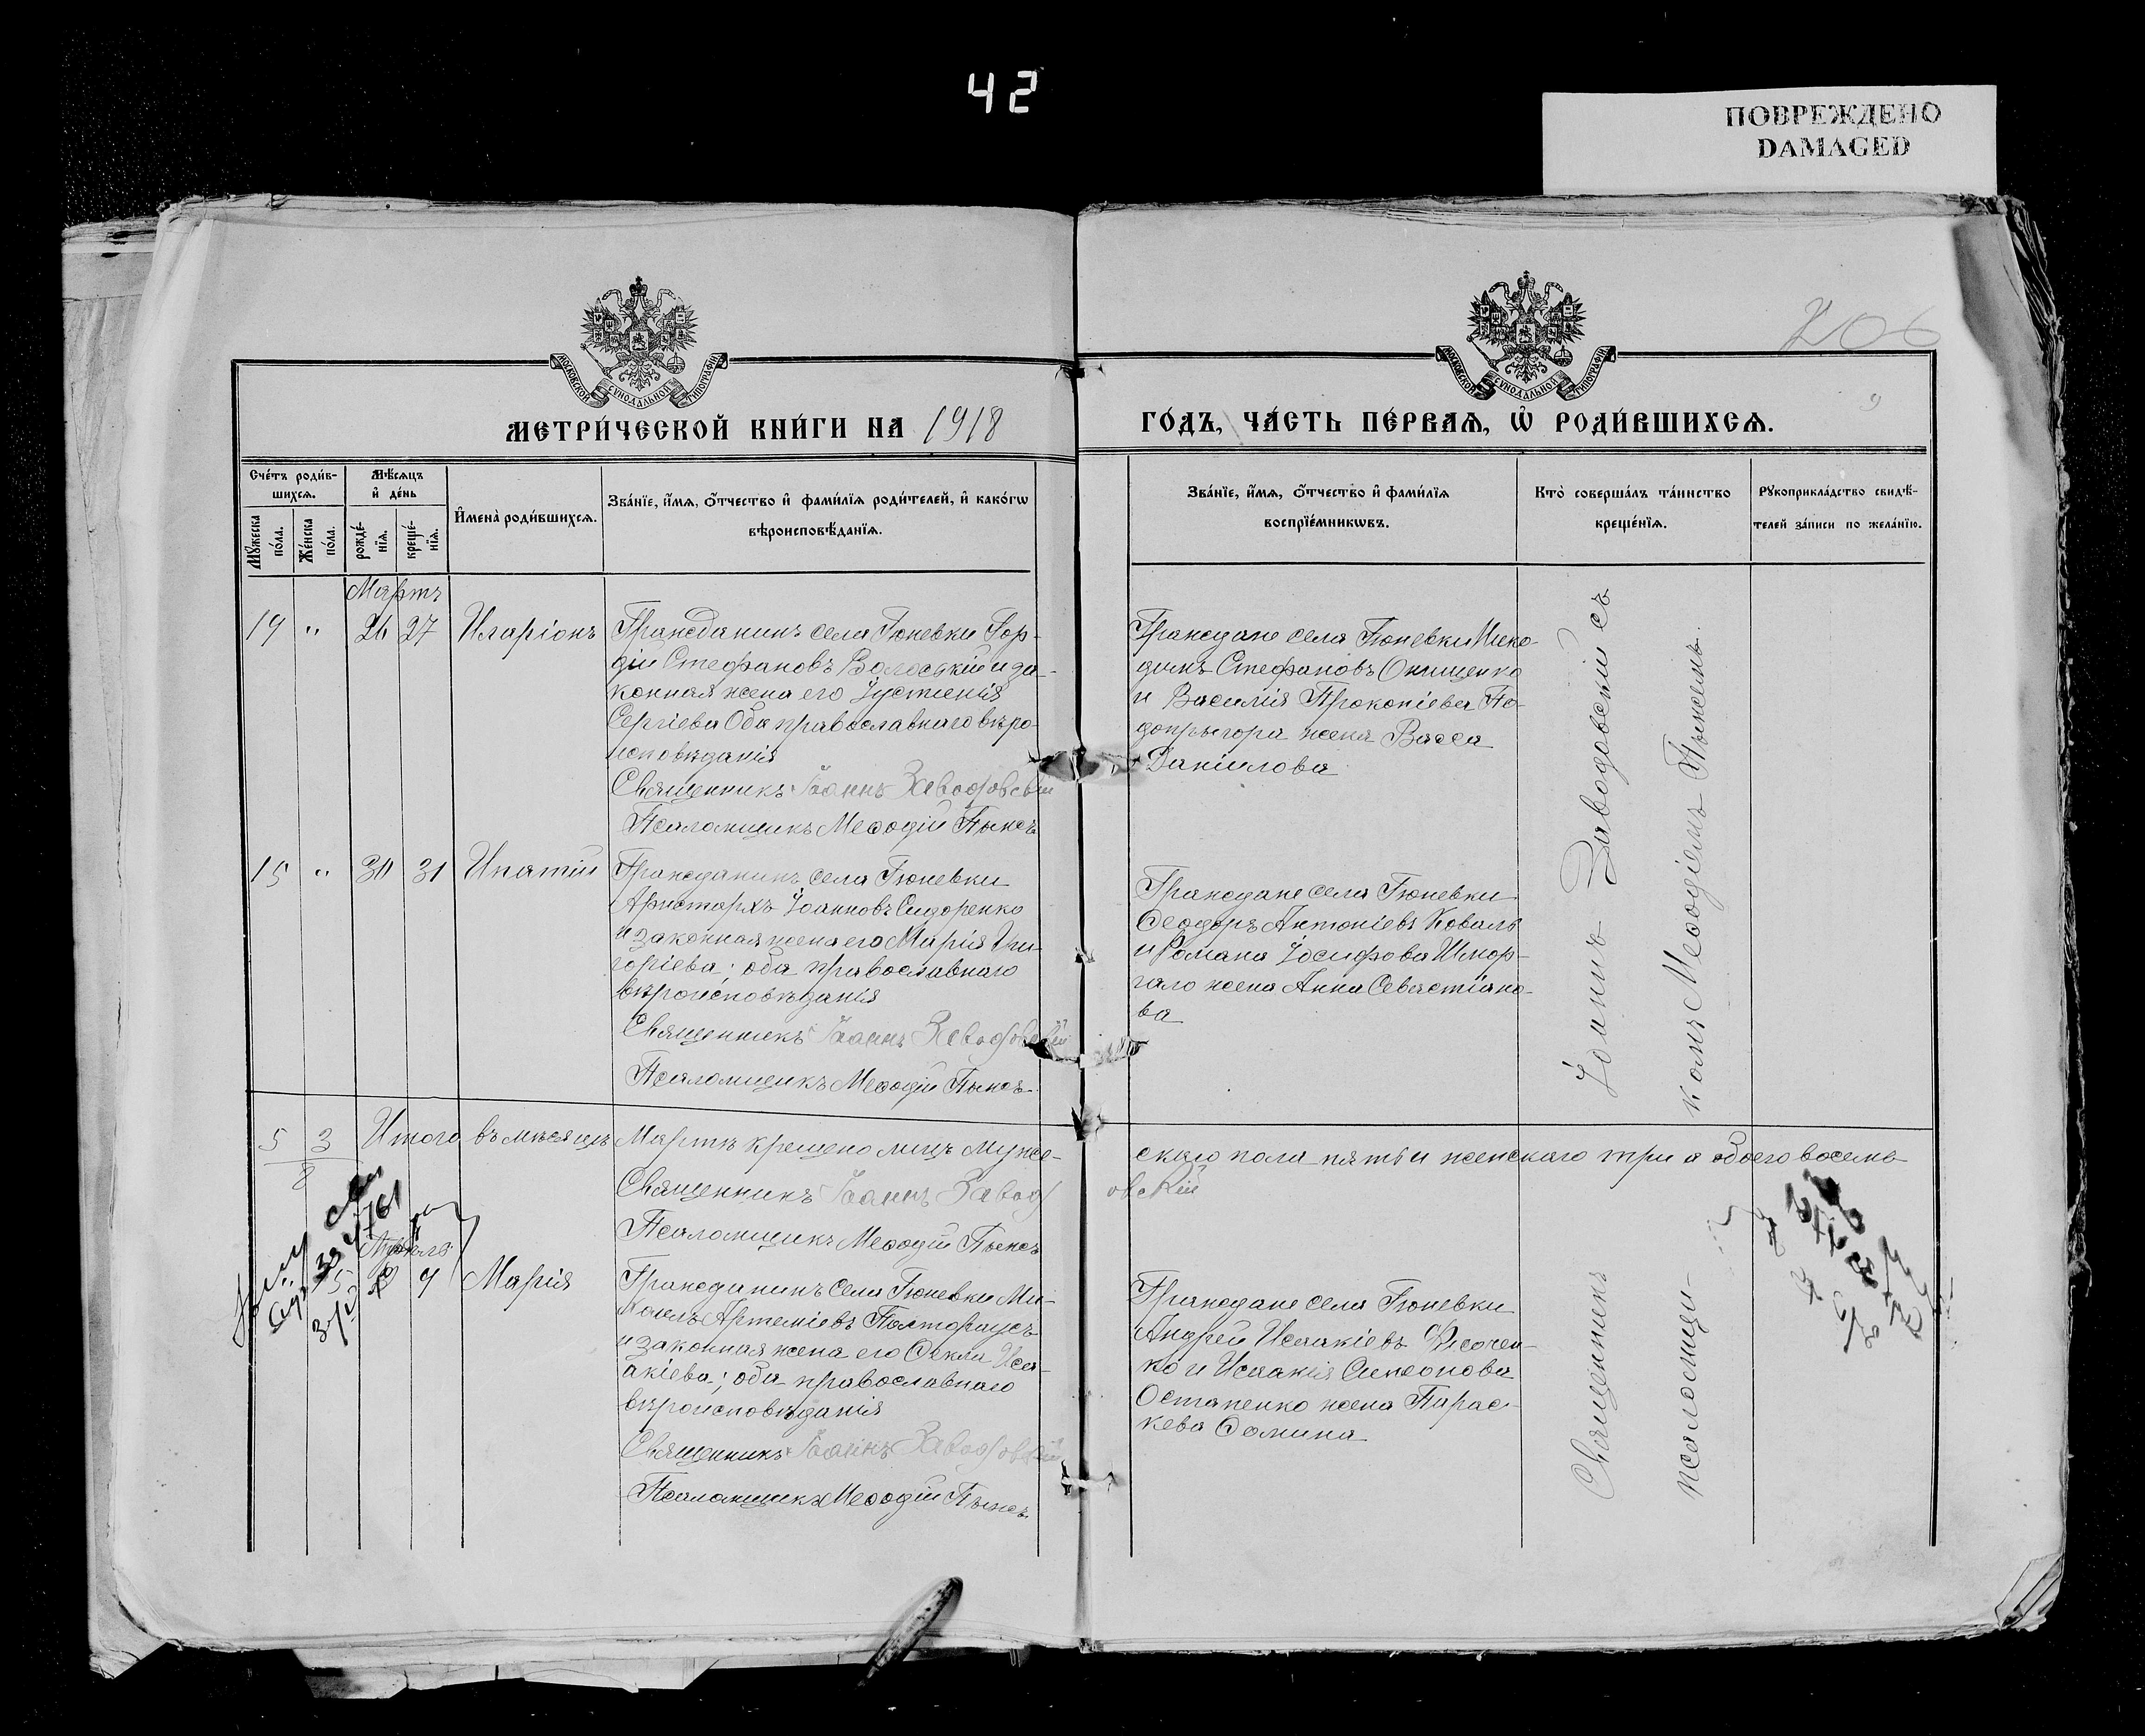 42
ПОВРЕЖДЕНО
DAMAGED
206
МОСКОВСКОЙ СУНОДАЛЬНОЙ ТИПОГРАФІИ
МОСКОВСКОЙ СУНОДАЛЬНОЙ ТИПОГРАФІИ
МЕТРИ́ЧЕСКОЙ КНИ́ГИ НА 1918
ГО́ДЪ, ЧА́СТЬ ПЕ́РВАѦ, Ѡ҆ РОДИ́ВШИХСѦ.
Сче́тъ роди́в-
шихсѧ.
Мꙋ́жеска
по́ла.
Же́нска
по́ла.
Мѣ́сѧцъ
и҆ де́нь
рожде́-
нїѧ.
креще́-
нїѧ.
И҆мена̀ роди́вшихсѧ.
Зва́нїе, и҆́мѧ, ѻ҆́тчество и҆ фами́лїѧ роди́телей, и҆ како́гѡ
вѣроисповѣ́данїѧ.
Зва́нїе, и҆́мѧ, ѻ҆́тчество и҆ фами́лїѧ
воспрїе́мникѡвъ.
Кто̀ соверша́лъ та́инство
креще́нїѧ.
Рꙋкоприкла́дство свидѣ́-
телей за́писи по жела́нїю.
Мартъ
14 " 26 27 Иларіонъ
Гражданинъ села Гюневки Гор-
дій Стефановъ Волоський и за-
конная жена его Іустинія
Сергіева Оба православнаго вѣро
исповѣданія
Священникъ Іоаннъ Заводовскій
Псаломщикъ Меѳодій Пыжъ
Граждане села Гюневки Нико-
димъ Стефановъ Онищенко
и Василія Прокопіева По-
допрыгора жена Васса
Даніилова
15 " 30 31 Ипатій
Гражданинъ села Гюневки
Аристархъ Іоанновъ Сидоренко
и законная жена его Марія Гри-
горіева; оба православнаго
вѣроисповѣданія
Священникъ Іоаннъ Заводовскій
Псаломщикъ Меѳодій Пыжъ
Граждане села Гюневки
Ѳеодоръ Антоніевъ Коваль
и Романа Іосифова Шмор-
гало жена Анна Севастіяно-
ва
5 3 Итого въ мѣсяцѣ Мартѣ крещено лицъ муже-
скаго пола пять и женскаго три а обоего восемь
8
Священникъ Іоаннъ Заводовскій
Псаломщикъ Меѳодій Пыжъ
Апрель
" 5 9 Марія
Гражданинъ села Гюневки Ми-
хаилъ Артеміевъ Полторацкъ
и законная жена его Ѳекла Иса-
акіева; оба православнаго
вѣроисповѣданія
Священникъ Іоаннъ Заводовскій
Псаломщикъ Меѳодій Пыжъ
Граждане села Гюневки
Андрей Исаакіевъ
ко и Исаакія Симеонова
Остапенко жена Парас-
кева Ѳомина
Священникъ Іоаннъ Заводовскій съ
псаломщи-
комъ Меѳодіемъ Пыжемъ.